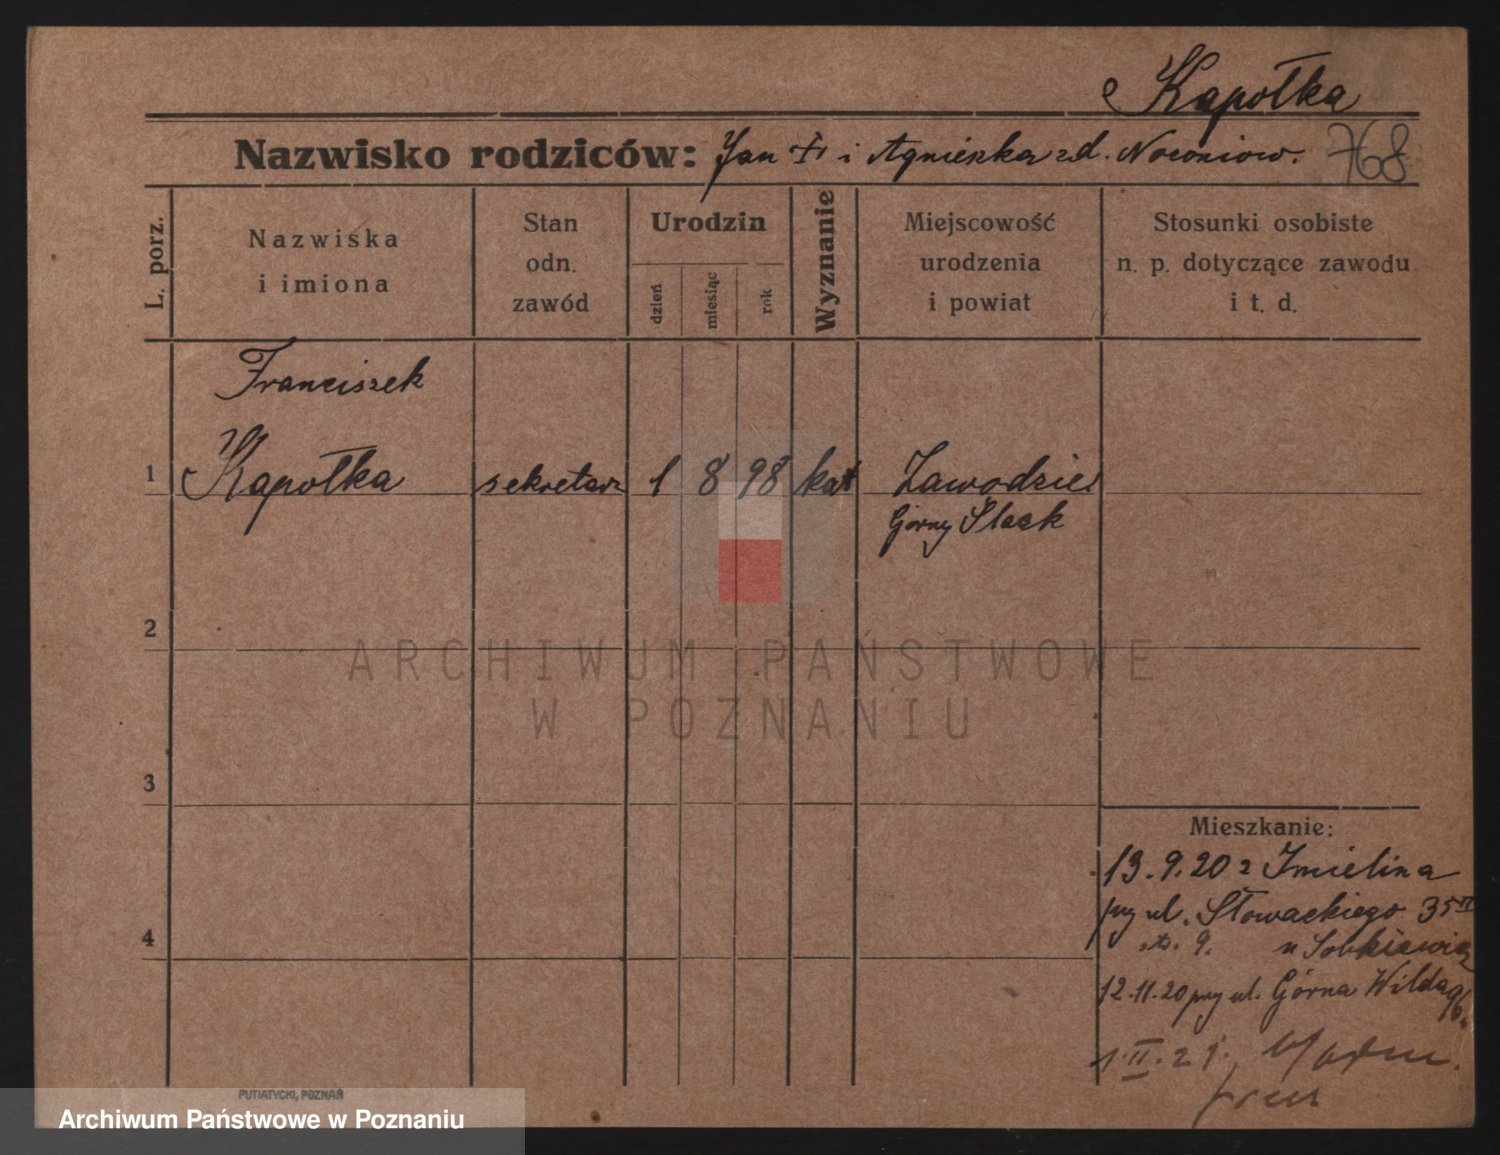 Kapołka
Nazwisko rodziców: Jan † i Agnieszka zd. 768
L. porz.
Nazwiska
i imiona
Stan
odn.
zawód
Urodzin
dzień
miesiąc
rok
Wyznanie
Miejscowość
urodzenia
i powiat
Stosunki osobiste
n. p. dotyczące zawodu
i t. d.
Franciszek
1 Kapołka sekretarz 1 8 98 kat Zawodzie
Górny Śląsk
2
ARCHIWUM PAŃSTWOWE
W POZNANIU
3
Mieszkanie:
13.9.20 z Imielina
przy ul. Słowackiego 35 II
4
9. u
12.11.20 przy ul. Górna Wilda 96.
1.II.21.
PUTIATYCKI, POZNAŃ
Archiwum Państwowe w Poznaniu